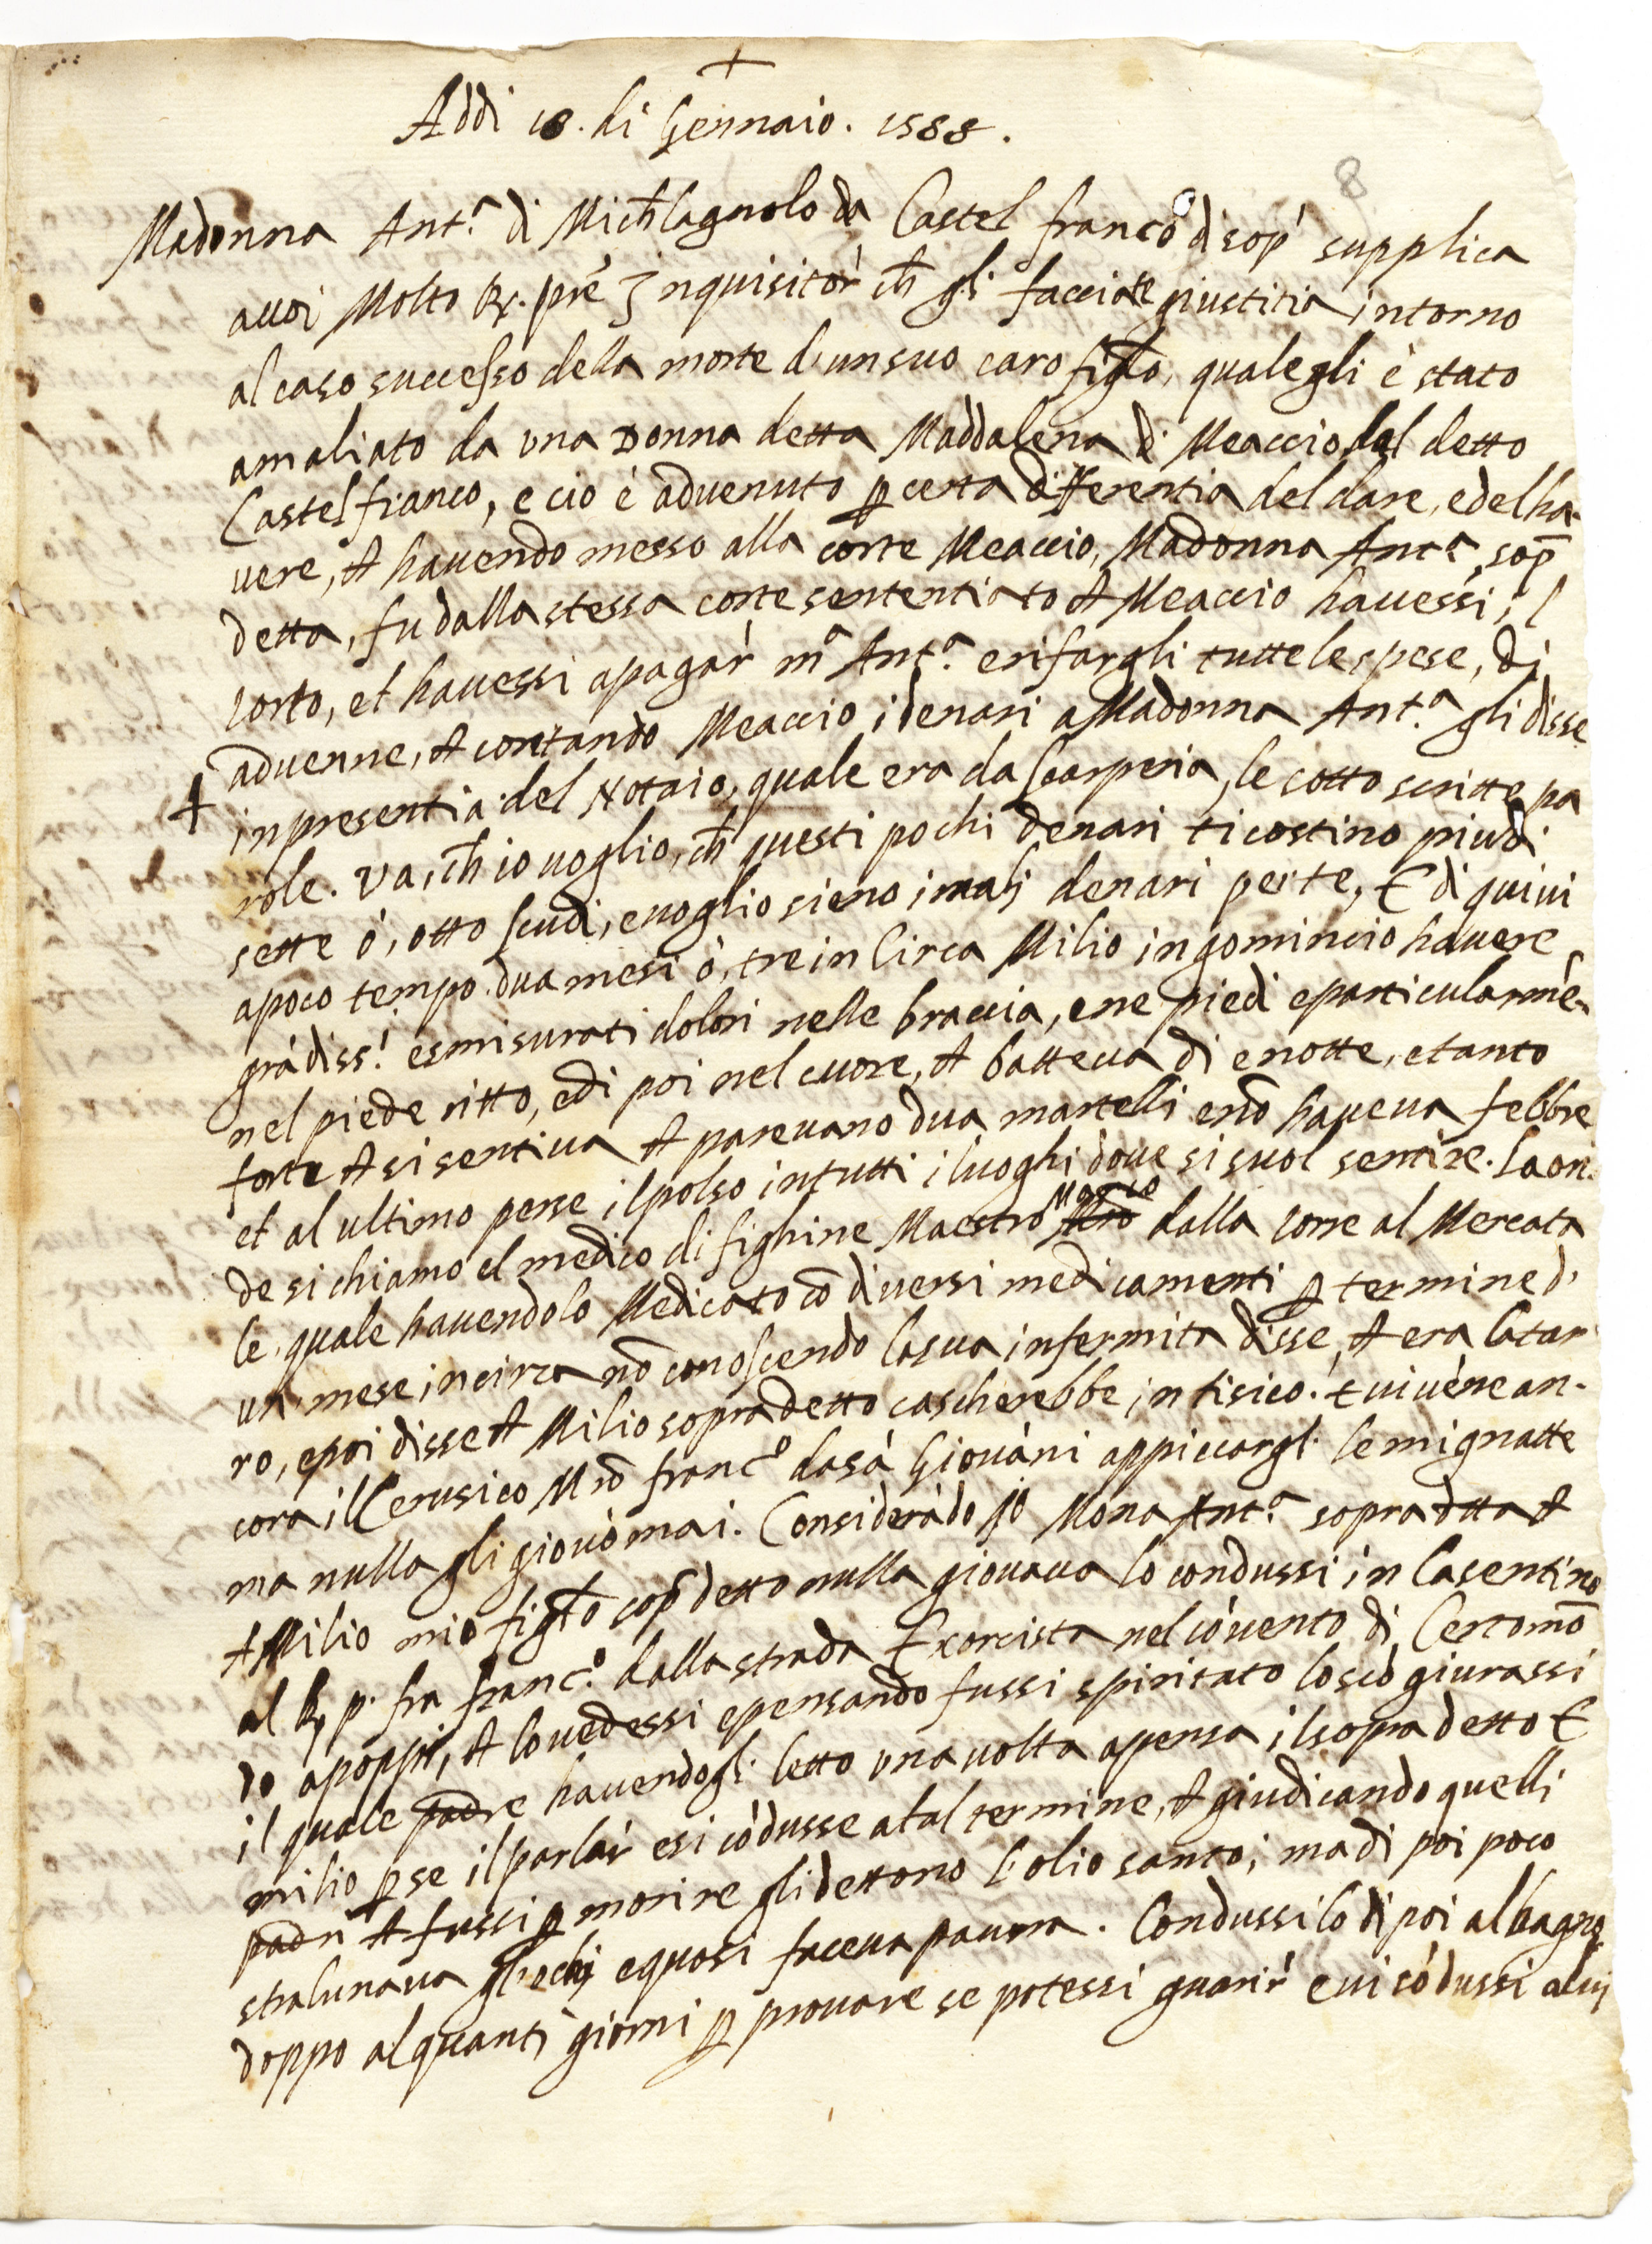 +
Addi 18. di Gennaio. 1588.
8
Madonna Ant.ª di Mich̃lagnolo da Castel franco di sop̃ supplica
auoi Molto R. prẽ Inquisitor̃ ch̃ gli facciate giustitia intorno
al caso successo della morte d'un suo caro figl̃o, quale gli è stato
amaliato da una Donna detta Maddalena di Meaccio dal detto
Castelfranco, e cio è aduenuto p certa differentia del dare, e del ha-
uere, ch̃ hauendo messo alla corte Meaccio, Madonna Ant.ª sop̃
detta, fu dalla stessa corte sententiato ch̃ Meaccio hauessi il
torto, et hauessi apagar̃ mª Ant.ª erifargli tutte le spese, di
aduenne, ch̃ contando Meaccio i denari a Madonna Ant.ª gli disse
+ in presentia del Notaio, quale era da scarperia, le sotto scritte pa
role. Va, ch̃ io uoglio, ch̃ questi pochi denari ti costino piu di
sette ò, otto scudi, e uoglio sieno i mali denari per te, E di quiui
apoco tempo dua mesi ò, tre in circa Milio in gomincio hauere
grãdiss.i esmisurati dolori nelle braccia, e ne piedi e particularmẽ-
nel piede ritto, e di poi nel cuore, ch̃ batteua di e notte, e tanto
forte ch̃ si sentiua ch̃ pareuano dua martelli e nõ haueua febbre
et al ultimo perse il polso in tutti i luoghi doue si suol sentire. La on-
de si chiamo el medico di fighine Maestro Marco dalla torre al Mercata
le, quale hauendolo Medicato cõ diuersi medicamenti p termine di
un mese in circa nõ conoscendo la sua infermita disse, ch̃ era Catar
ro, e poi disse ch̃ Milio sopradetto cascherebbe in tisico. E ui uẽne an-
cora il Cerusico Mrõ franc.º da sã Giouãni appiccargli le mignatte
ma nulla gli giouò mai. Considerãdo io Mona Ant.ª sopra dtta ch̃
Milio mio figl̃o sop̃ detto nulla giouaua lo condussi in Casentino
al R. p. fra franc.º dalla strada Exorcista nel cõuento di Certomõ
do apoppi, ch̃ lo uedessi e pensando fussi spiritato lo scõgiurassi
il quale padre hauendogli letto una uolta apensa il sopra detto E
milio pse il parlar̃ e si cõdusse a tal termine, ch̃ giudicando quelli
padri ch̃ fussi p morire gli dettono l'olio santo; ma di poi poco
stralunaua gl'ochi e quasi faceua paura. Condussilo di poi al bagno
doppo alquanti giorni p prouare se potessi guarir̃ e ui cõdussi alui